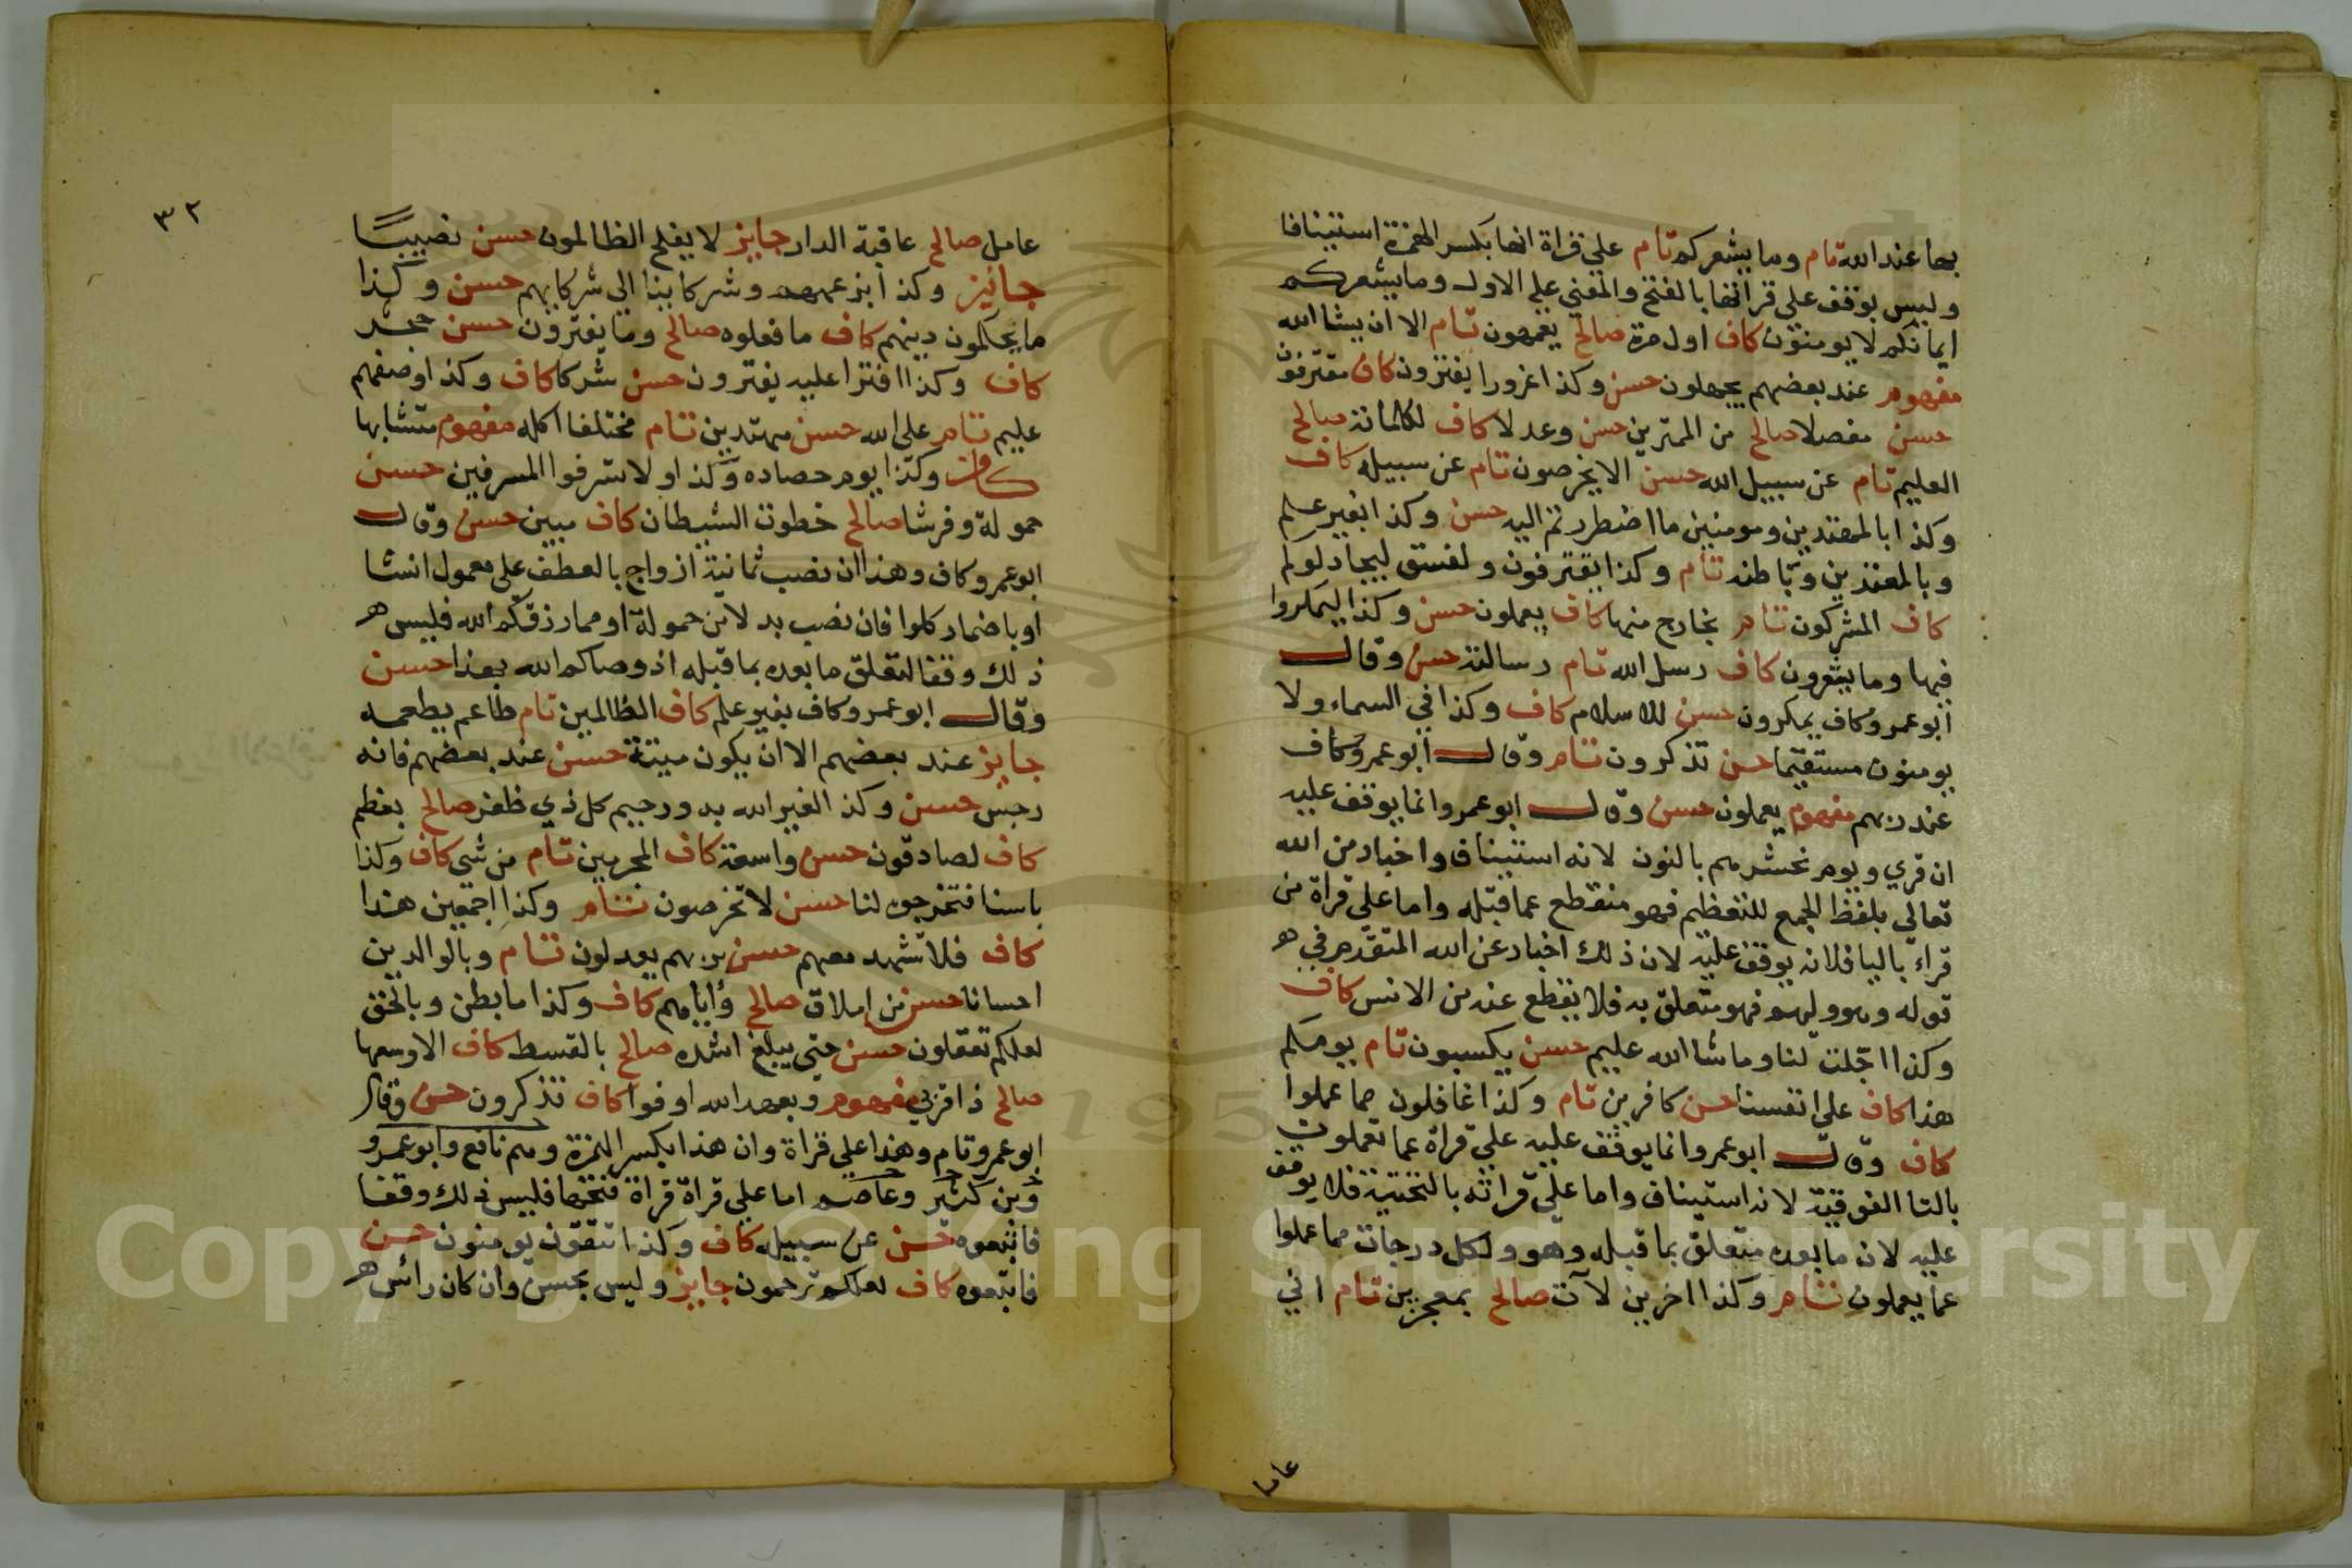 بها عند الله تام وما يشعركم تام علي قراة انها بكسر الهمزة استينافا
وليس بوقف علي قرانها بالفتح والمعني علي الاول وما يشعركم
ايمانكم لا يومنون كاف اول مرة صالح يعمهون تام الا ان يشا الله
مفهوم عند بعضهم يجهلون حسن وكذا غرورا يفترون كاف مقترفون
حسن مفصلا صالح من الممترين حسن وعدلا كاف لكلماته صالح
العليم تام عن سبيل الله حسن الا يخرصون تام عن سبيله كاف
وكذا بالمهتدين ومومنين ما اضطررتم اليه حسن وكذا بغير علم
وبالمعتدين وباطنه تام وكذا يقترفون ولفسق ليجادلوكم
كاف المشركون تام بخارج منها كاف يعملون حسن وكذا ليمكروا
فيها وما يشعرون كاف رسل الله تام رسالته حسن وقال
ابو عمرو كاف يمكرون حسن للاسلام كاف وكذا في السماء ولا
يومنون مستقيما حسن تذكرون تام وقال ابو عمرو كاف
عند ربهم مفهوم يعملون حسن وقال ابو عمرو انما يوقف عليه
ان قري ويوم نحشرهم بالنون لانه استيناف واخبار من الله
تعالي بلفظ الجمع للتعظيم فهو منقطع عما قبله واما علي قراة من
قراء باليا فلا يوقف عليه لان ذلك اخبار عن الله المتقدم في
قوله وهو وليهم فهو متعلق به فلا يقطع عنه من الانس كاف
وكذا اجلت لنا وما شا الله عليم حسن يكسبون تام يومكم
هذا كاف علي انفسنا حسن كافرين تام وكذا غافلون مما عملوا
كاف وقال ابو عمرو انما يوقف عليه علي قراة عما تعملون
بالتا الفوقية لانه استيناف واما علي قراته بالتحتية فلا يوقف
عليه لان ما بعده متعلق بما قبله وهو ولكل درجات مما عملوا
عما يعملون تام وكذا اخرين لآت صالح بمعجزين تام اني
عامل
٣٢
عامل صالح عاقبة الدار جايز لا يفلح الظالمون حسن نصيبا
جائز وكذا بزعمهم وشركاينا الي شركايهم حسن وكذا
ما يحكمون دينهم كاف ما فعلوه صالح وما يفترون حسن حجر
كاف وكذا افترا عليه يفترون حسن شركا كاف وكذا وصفهم
عليم تام علي الله حسن مهتدين تام مختلفا اكله مفهوم متشابها
كاف وكذا يوم حصاده وكذا ولا تسرفوا المسرفين حسن
حمولة وفرشا صالح خطوت الشيطان كاف مبين حسن وقال
ابو عمرو كاف وهذا ان نصب ثمانية ازواج بالعطف علي معمول انشا
او باضمار كلوا فان نصب بدلا من حمولة او مما رزقكم الله فليس
ذلك وقفا لتعلق ما بعده بما قبله اذ وصاكم الله بهذا حسن
وقال ابو عمرو كاف بغير علم كاف الظالمين تام طاعم يطعمه
جايز عند بعضهم الا ان يكون ميتة حسن عند بعضهم فانه
رجس حسن وكذا لغير الله به ورحيم كل ذي ظفر صالح بعظم
كاف لصادقون حسن واسعة كاف المجرمين تام من شي كاف وكذا
باسنا فتخرجوه لنا حسن لا تخرصون تام وكذا اجمعين هذا
كاف فلا تشهد معهم حسن بربهم يعدلون تام وبالوالدين
احسانا حسن من املاق صالح واياهم كاف وكذا ما بطن وبالحق
لعلكم تعقلون حسن حتي يبلغ اشده صالح بالقسط كاف الا وسعها
صالح ذا قربي مفهوم وبعهد الله اوفوا كاف تذكرون حسن وقال
ابو عمرو تام وهذا علي قراة وان هذا بكسر الهمزة وهم نافع وابو عمرو
وبن كثير وعاصم اما علي قراة قراة فتحها فليس ذلك وقفا
فاتبعوه حسن عن سبيله كاف وكذا تتقون يومنون حسن
فاتبعوه كاف لعلكم ترحمون جايز وليس بحسن وان كان راس
Copyright © King Saud University
195